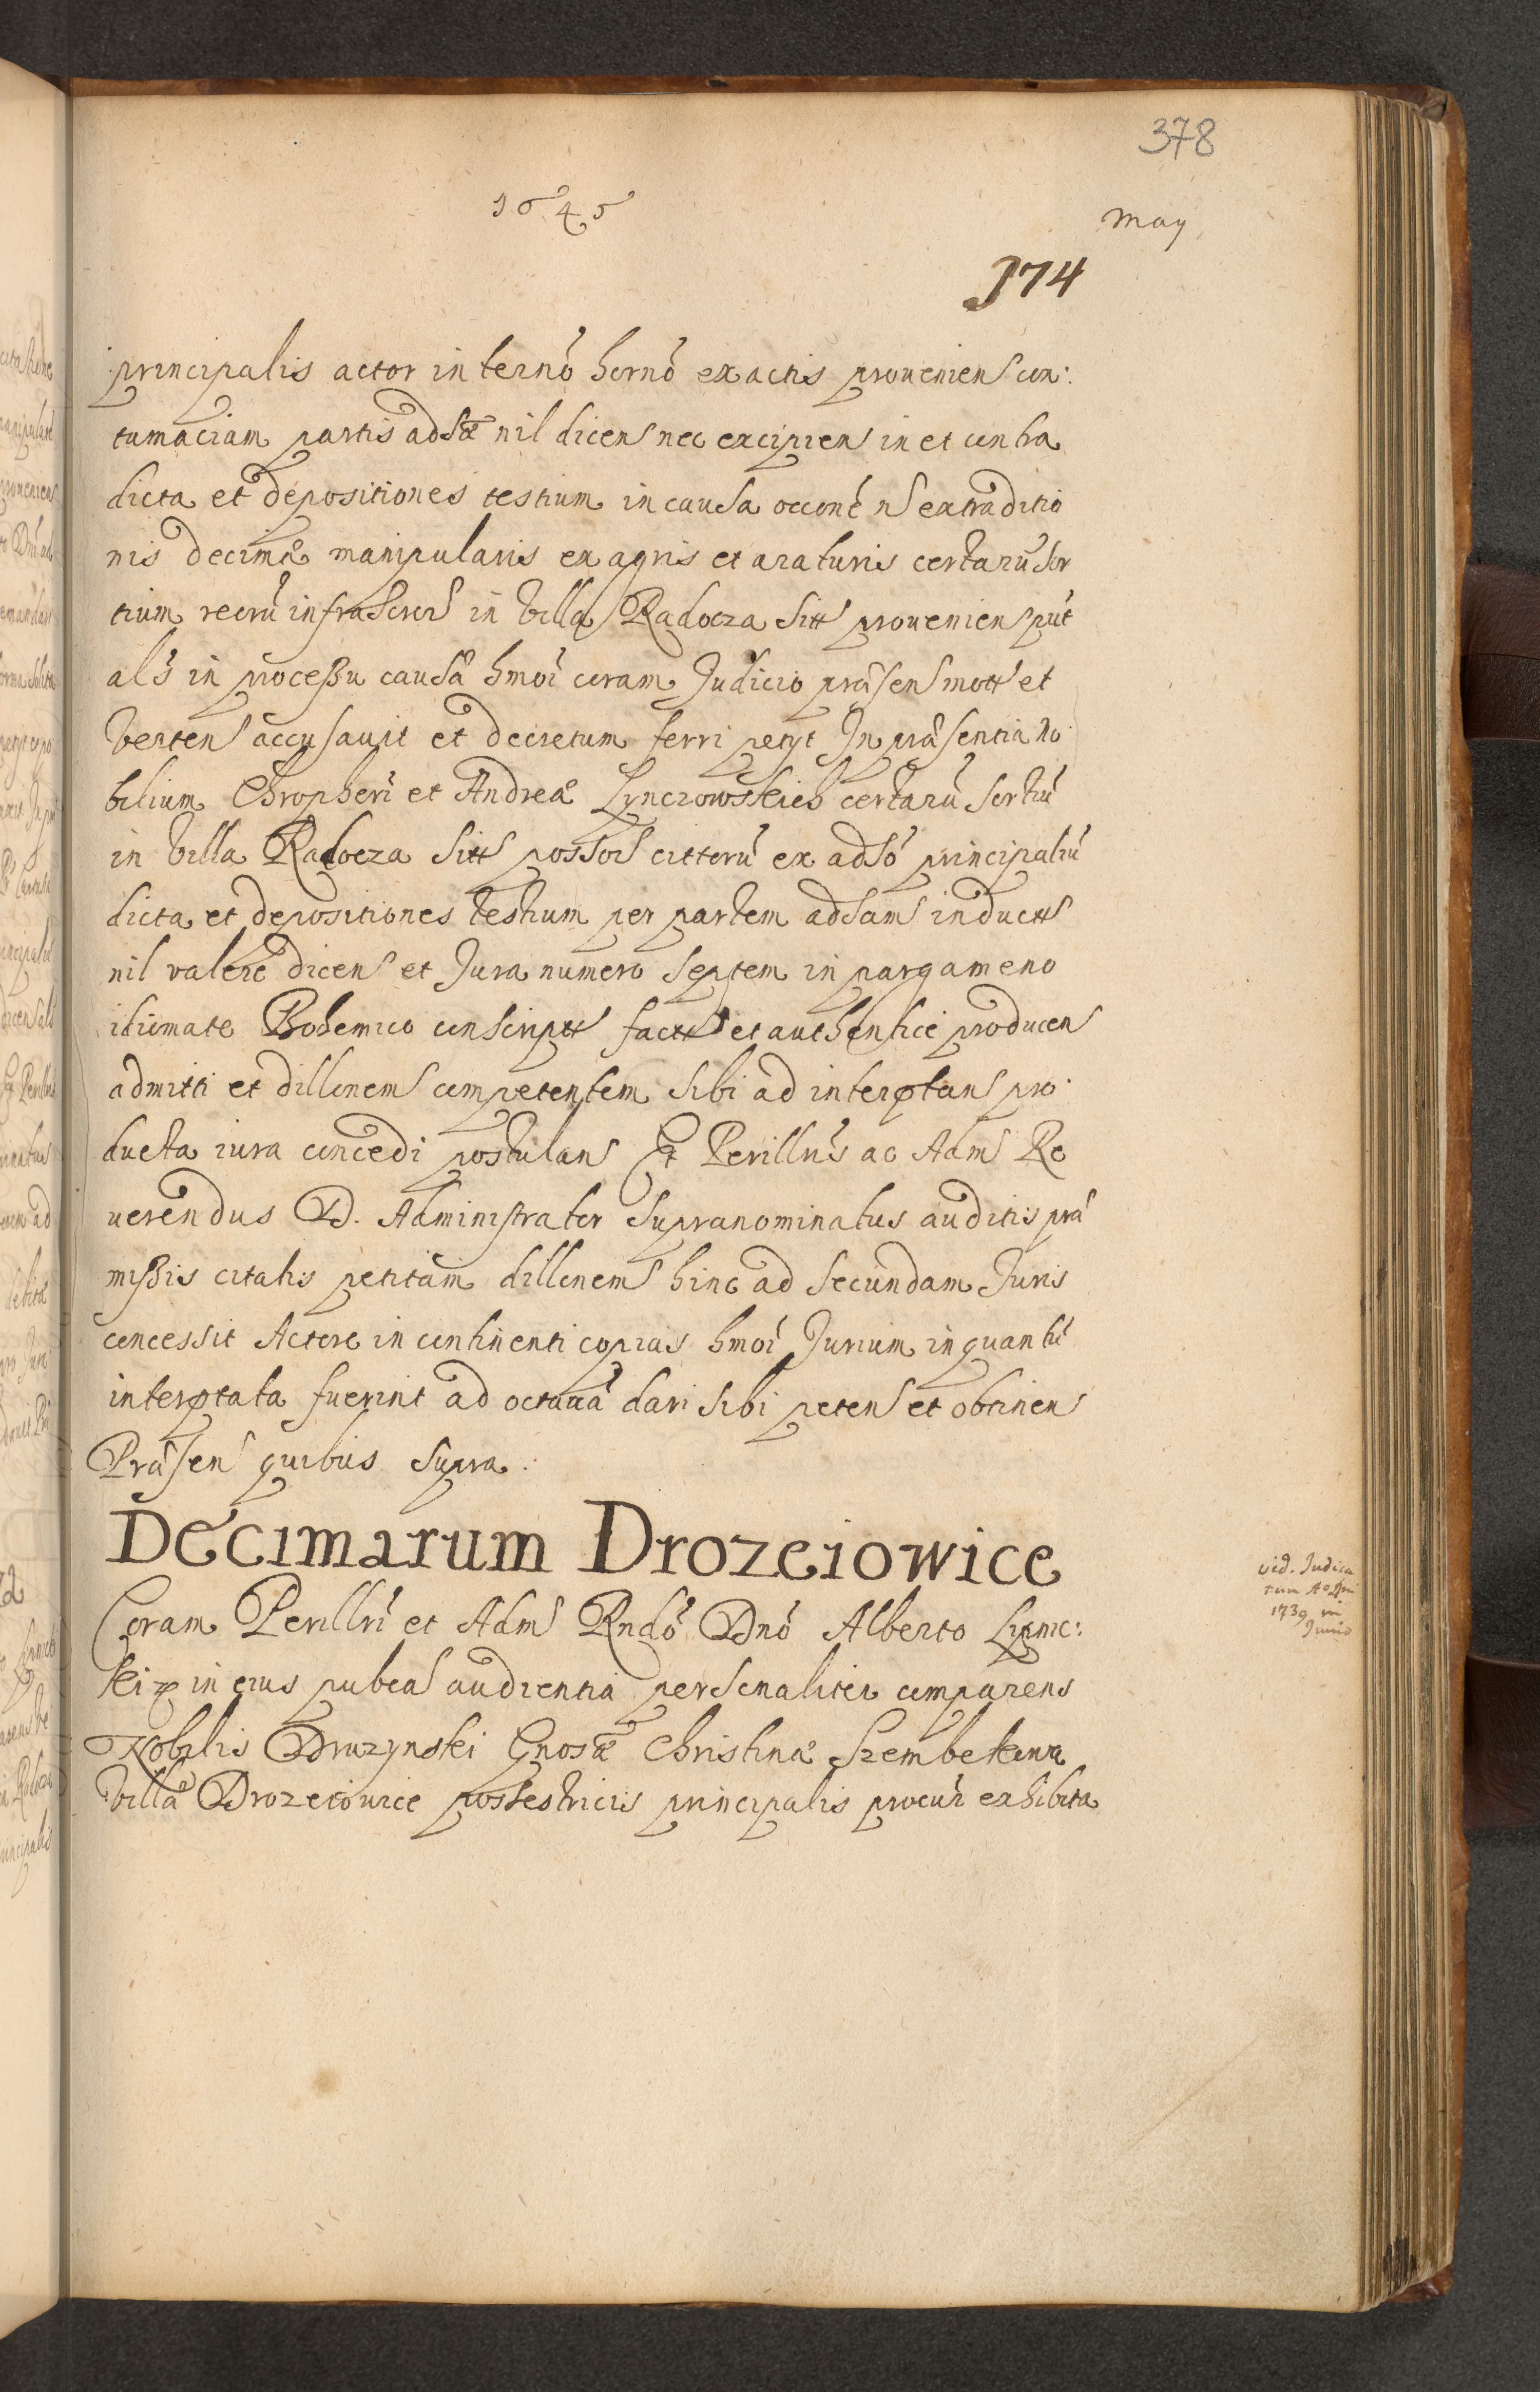 378
1645
May
174
principalis actor in termō hornō ex actis proueniens con:
tumaciam partis adsæ nil dicens nec excipiens in et contra
dicta et depositiones testium in causa occōnē ns extraditio
nis decimæ manipularis ex agris et araturis certarū sor
tium recrū infrascrs in Villa Radocza sitt proueniens put
als in processu causæ hmōi coram Judicio præsens mott et
verten accusauit et decretum ferri petyt In præsentia No
bilium Chropheri et Andreæ Lynczowskich certarū sortiū
in Villa Radocza sitt possors cittorū ex adsō principaliū
dicta et depositiones testium per partem adsam inductt
nil valere dicens et Jura numero septem in pargameno
idiomate Bohemico conscriptt factt et authentice producens
admitti et dillonem competentem sibi ad interptan pro
ducta iura concedi postulans Et Perillris ac Adm Re
uerendus D. Administrator supranominatus auditis præ
missis citatis petitam dillonem hinc ad secundam Juris
concessit Actore in continenti copias hmōi Jurium in quantū
interptata fuerint ad octauā dari sibi petens et obtinens
Præsen quibus supra.
Decimarum Drozeiowice
Coram Perillri et Adm Rndō Dnō Alberto Lipnic:
ki in eius pubca audientia personaliter comparens
Nobilis Druzynski Gnosæ Christinæ Szembekowa
villæ Drozeiowice possestricis principalis procur exhibita
vid. Judica
tum Ao Dni
1739 in
Junio